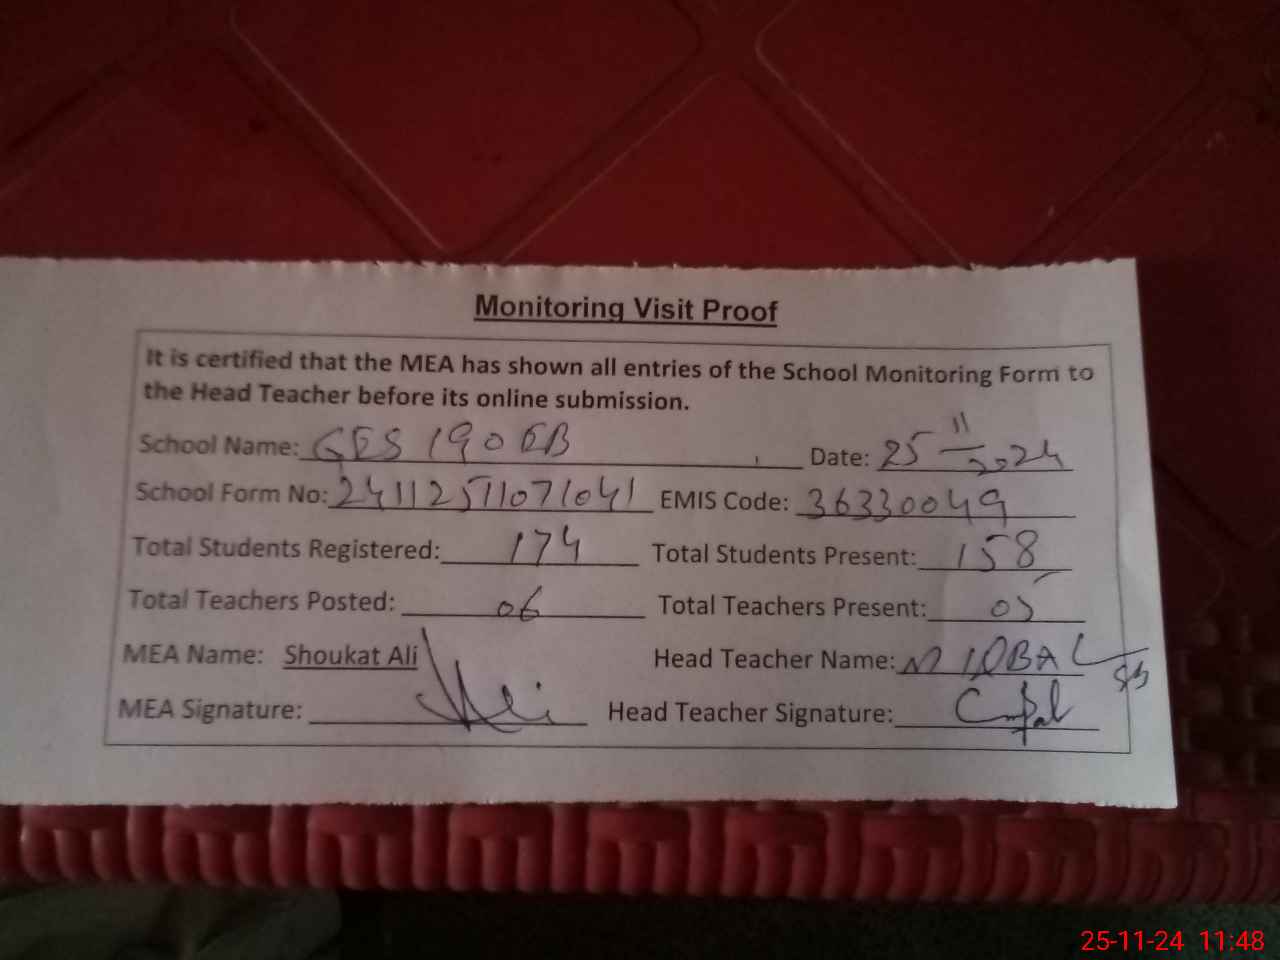 Monitoring Visit Proof
It is certified that the MEA has shown all entries of the School Monitoring Form to
the Head Teacher before its online submission.
School Name: GES 190 EB Date: 25 11/2024
School Form No: 24112511071041 EMIS Code: 36330049
Total Students Registered: 174 Total Students Present: 158
Total Teachers Posted: 06 Total Teachers Present: 05
MEA Name: Shoukat Ali Head Teacher Name: M IQBAL
MEA Signature: Head Teacher Signature:
25-11-24 11:48